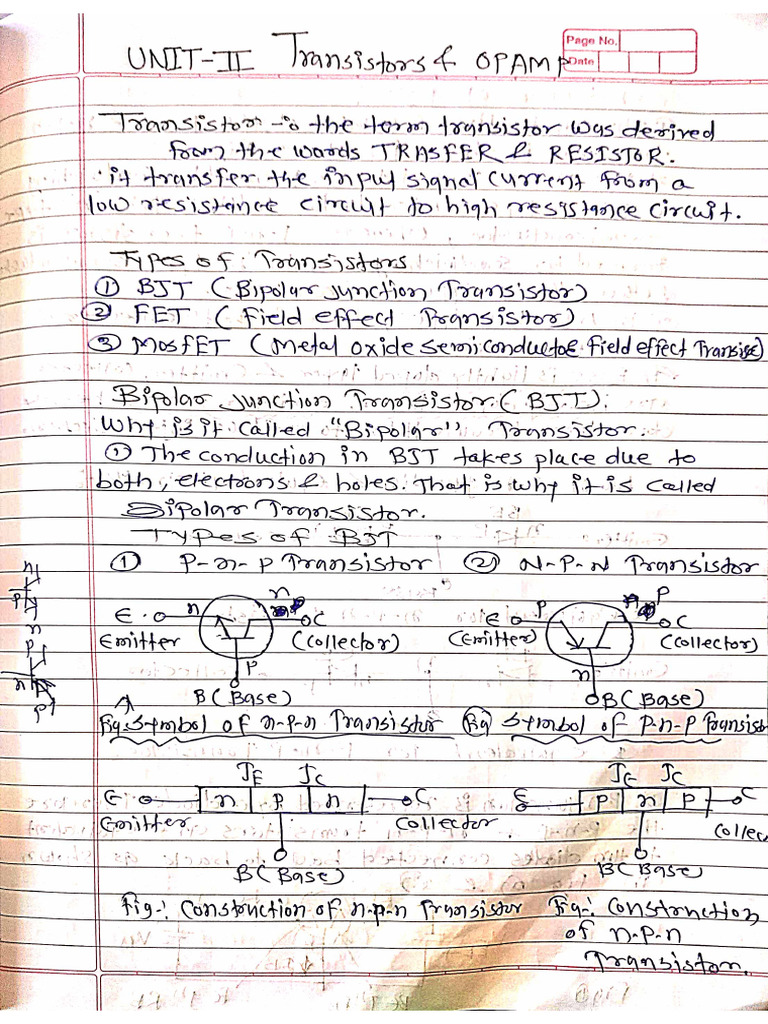 Page No.
Date
UNIT-II Transistors & OPAMP
Transistor :- the term transistor was derived
from the words TRASFER & RESISTOR.
it transfer the input signal current from a
low resistance circuit to high resistance circuit.
Types of Transistors
① BJT (Bipolar Junction Transistor)
② FET (Field effect Transistor)
③ MOSFET (Metal oxide semiconductor field effect Transis)
Bipolar Junction Transistor (BJT):
Why is it called "Bipolar" Transistor.
① The conduction in BJT takes place due to
both, electrons & holes. That is why it is called
Bipolar Transistor.
Types of BJT
① P-n-p Transistor ② N-P-N Transistor
n
p
n
p
n
p
E n n C
Emitter (Collector)
P
B (Base)
E P P C
(Emitter) (Collector)
n
B (Base)
Fig:- Symbol of n-p-n Transistor
Fig Symbol of P-n-P Transist
JE JC
E n P n C
Emitter Collector
B (Base)
JE JC
E P n P C
Collec
B (Base)
Fig-: Construction of n-p-n Transistor
Fig-: Construction
of n-p-n
Transistor.